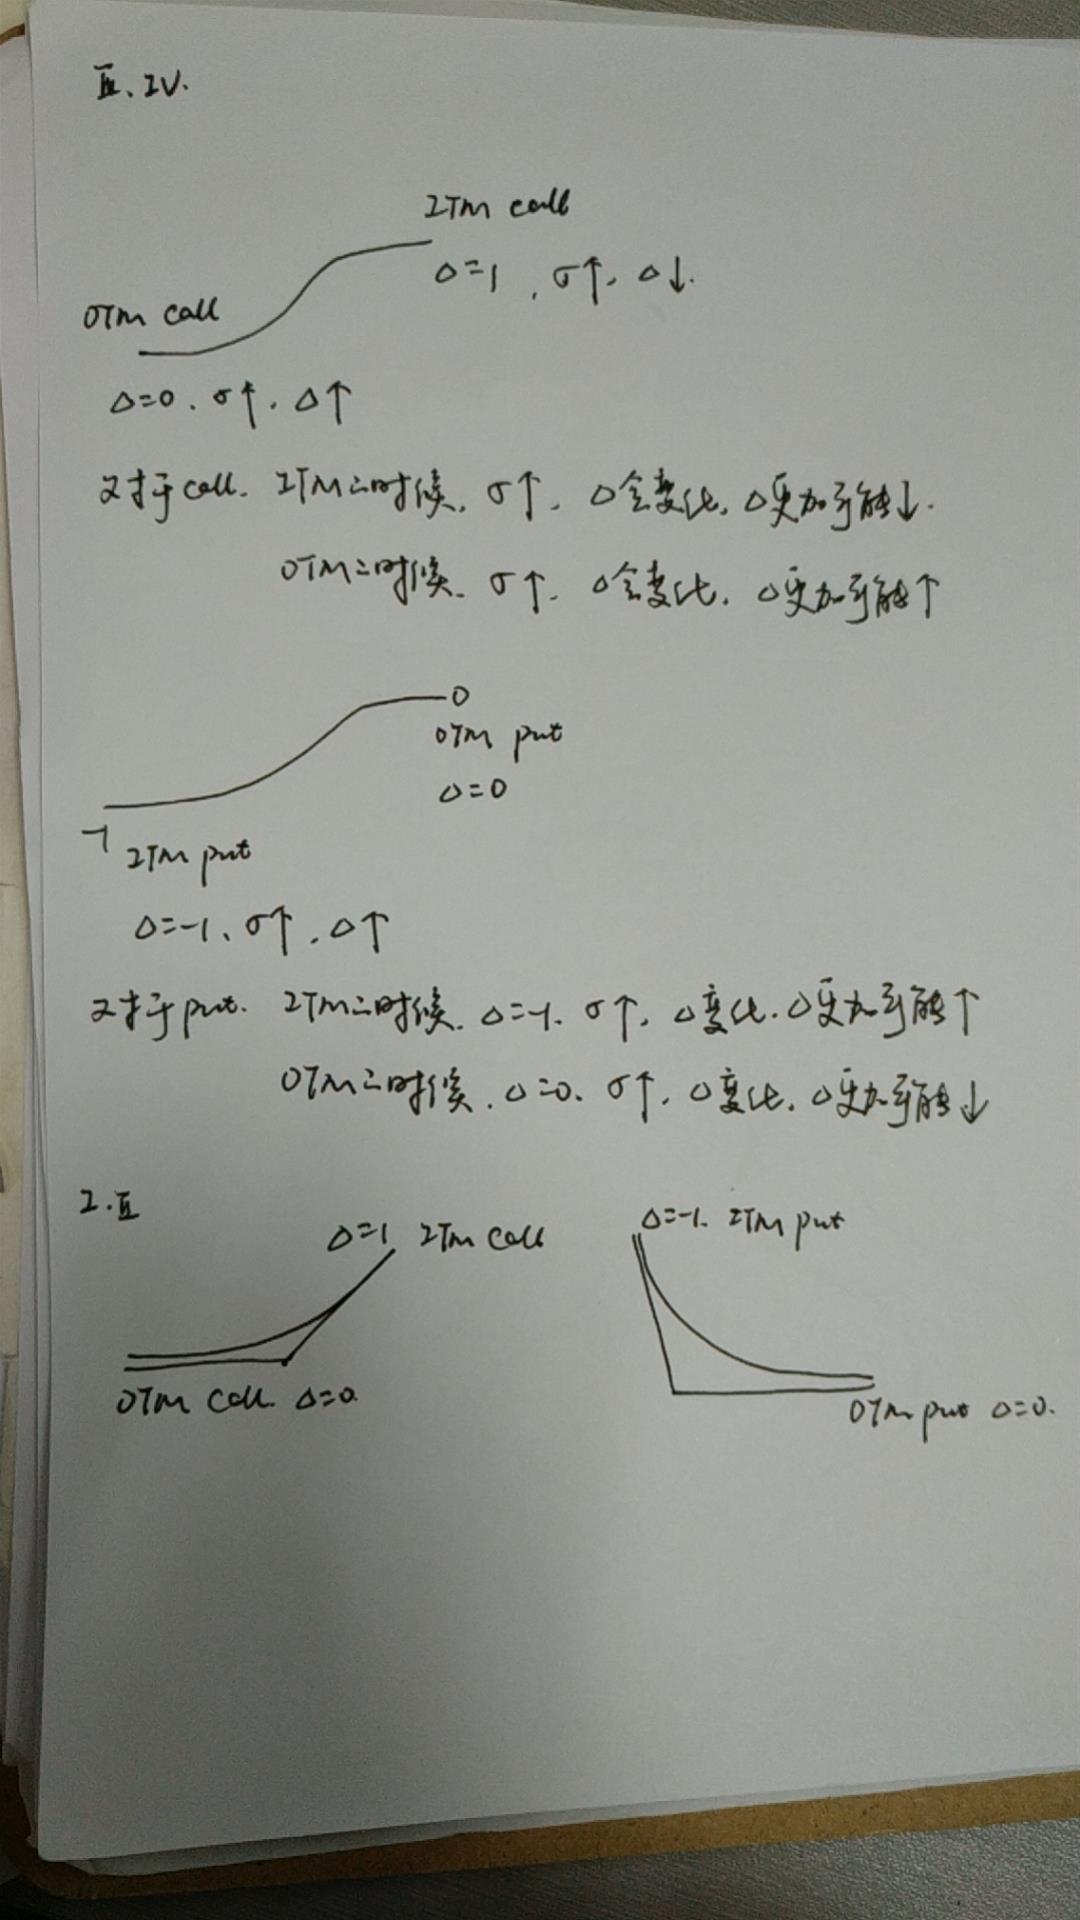 III、IV.
ITM call
Δ=1 , σ↑, Δ↓.
OTM call
Δ=0、σ↑、Δ↑
对于call. ITM的时候, σ↑, Δ会变化, Δ更加可能↓.
OTM的时候、σ↑、Δ会变化, Δ更加可能↑
0
OTM put
Δ=0
-1
ITM put
Δ=-1、σ↑、Δ↑
对于put. ITM的时候、Δ=-1、σ↑, Δ变化、Δ更加可能↑
OTM的时候、Δ=0、σ↑, Δ变化、Δ更加可能↓
I.II
Δ=1 ITM call
Δ=-1. ITM put
OTM call Δ=0.
OTM put Δ=0.